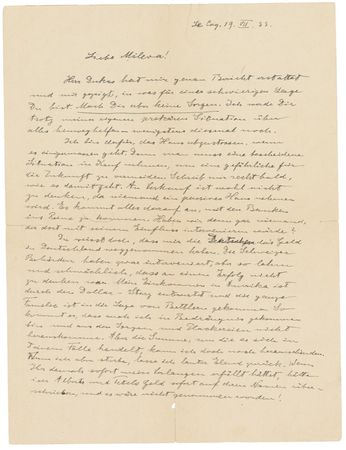 Le Coq, 19. VII. 33.
Liebe Mileva!
Frau Dukas hat mir genau Bericht erstattet
und mir gezeigt, in was für einer schwierigen Lage
Du bist. Mach Dir aber keine Sorgen. Ich werde Dir
trotz meiner eigenen prekären Situation über
alles hinweghelfen wenigstens diesmal noch.
Ich bin dafür, das Haus abzustossen, wenn
es einigermassen geht. Denn man muss eine bescheidene
Situation in Kauf nehmen, um eine gefährliche für
die Zukunft zu vermeiden. Schreib mir recht bald,
wie es damit geht. An Verkauf ist wohl nicht
zu denken, da niemand ein passives Haus nehmen
wird. Es kommt alles darauf an, mit den Banken
ins Reine zu kommen. Haben wir denn gar niemand,
der dort mit seinem Einfluss intervenieren würde?
Du weisst doch, dass mir die Deutschen das Geld
in Deutschland weggenommen haben. Die Schweizer
Behörden haben zwar interveniert, aber so lahm
und schwächlich, dass an einen Erfolg nicht
zu denken war. Mein Einkommen in Amerika ist
durch den Dollar-Sturz entwertet und die ganze
Familie ist in die Lage von Bettlern gekommen. So
kommt es, dass auch ich in Bedrängnis gekommen
bin und aus den Sorgen und Plackereien nicht
herauskomme. Aber die Summe, um die es sich in
Deinem Falle handelt, kann ich doch noch herausfinden.
Wenn ich aber sterbe, lasse ich lauter Elend zurück. Wenn
Ihr damals sofort mein Verlangen erfüllt hättet, hätte
ich Alberts und Tetels Geld sofort auf deren Namen über-
schrieben, und es wäre nicht genommen worden!